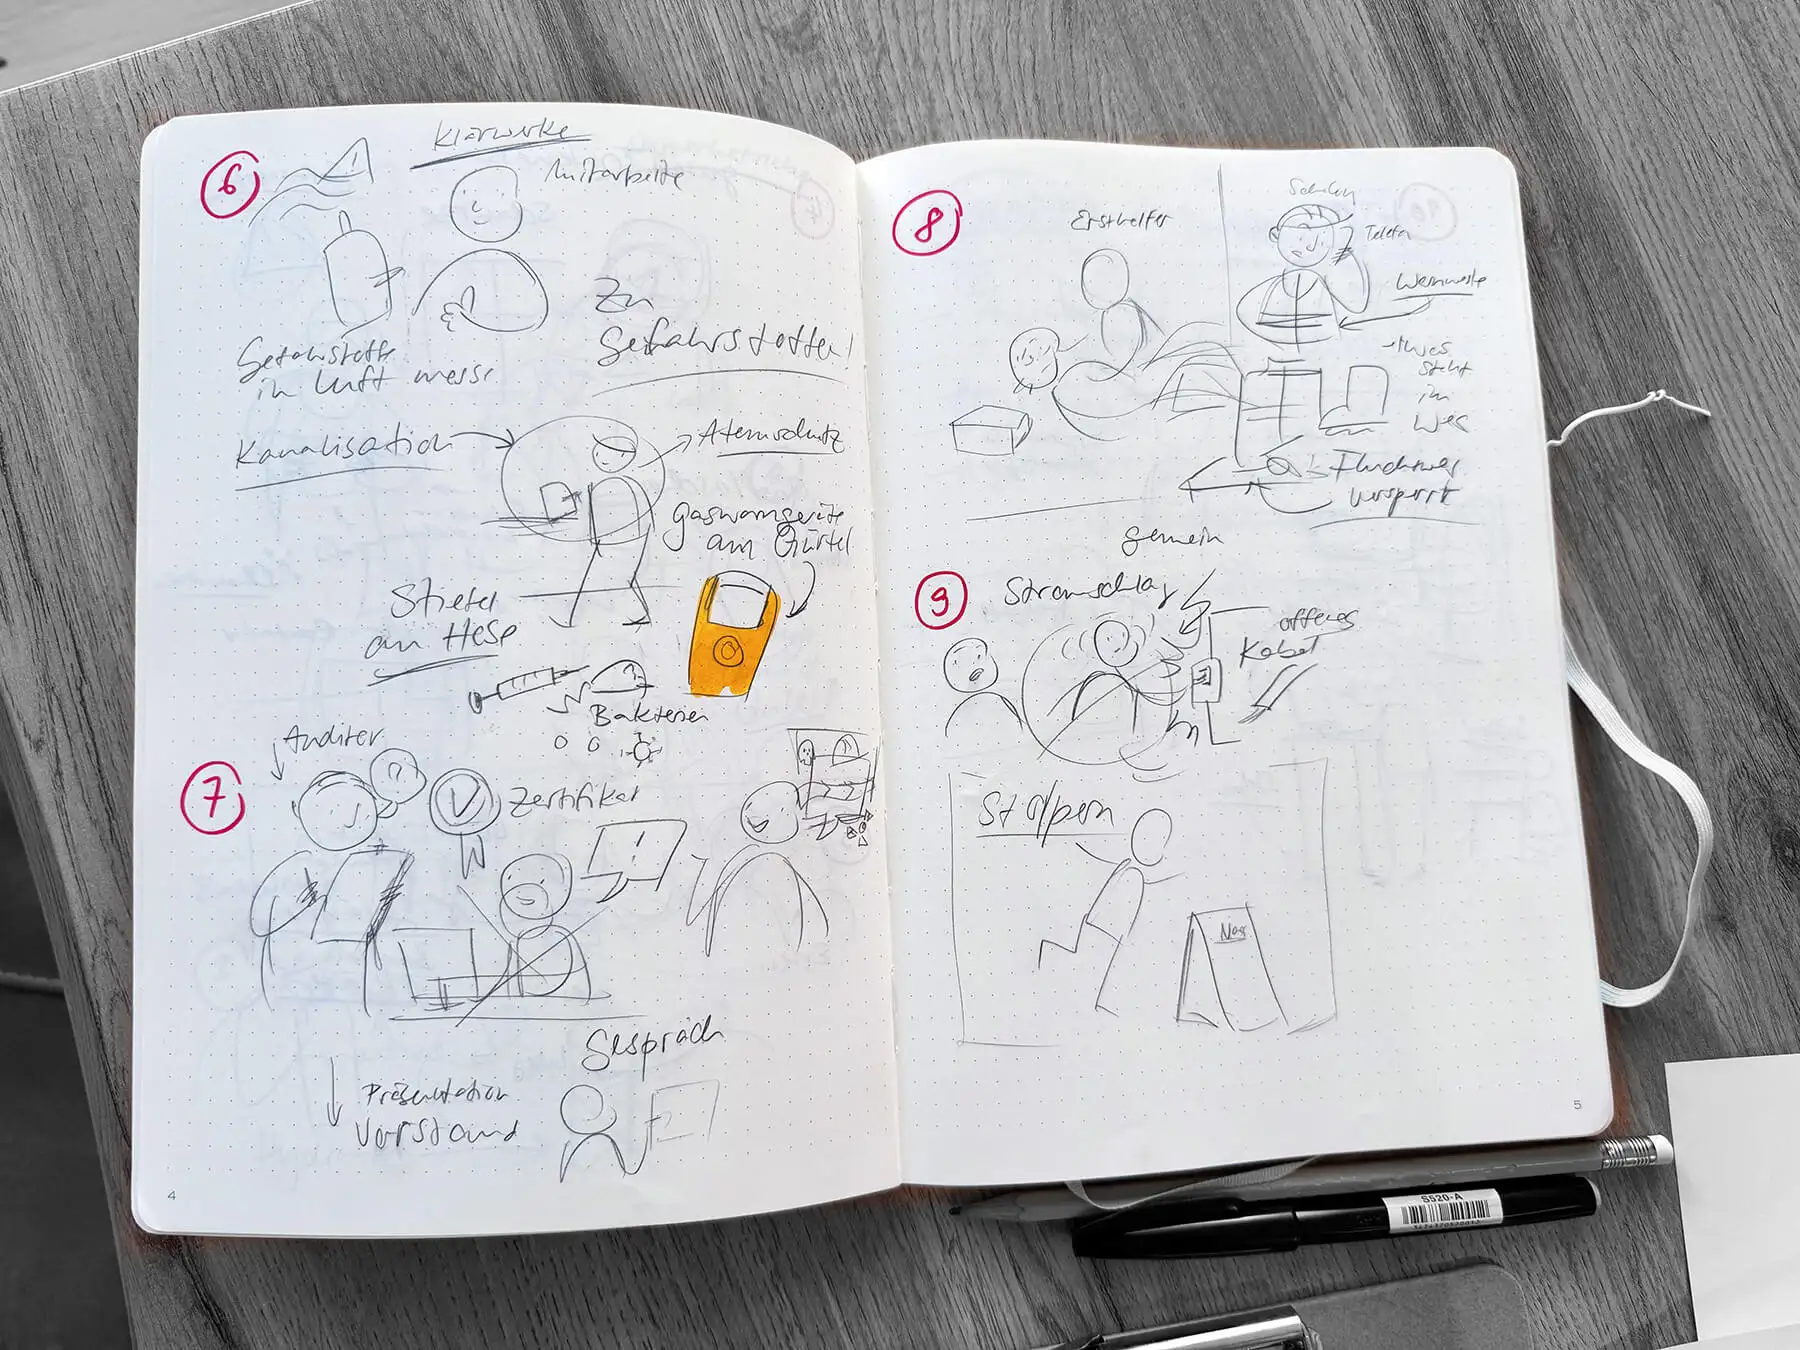 6
Klärwerke
Mitarbeiter
zu
Gefahrstoffen!
Gefahrstoffe
in Luft messe
Kanalisation
Atemschutz
Gaswarngeräte
am Gürtel
Stiefel
an Hose
Bakterien
7
Auditor
?
Zertifikat
!
Gespräch
Präsentation
Vorstand
4
8
Ersthelfer
Telefon
Warnweste
etwas
steht
in
Weg
Fluchtweg
versperrt
gemein
9
Stromschlag
offenes
Kabel
Stolpern
Nass
5
S520-A